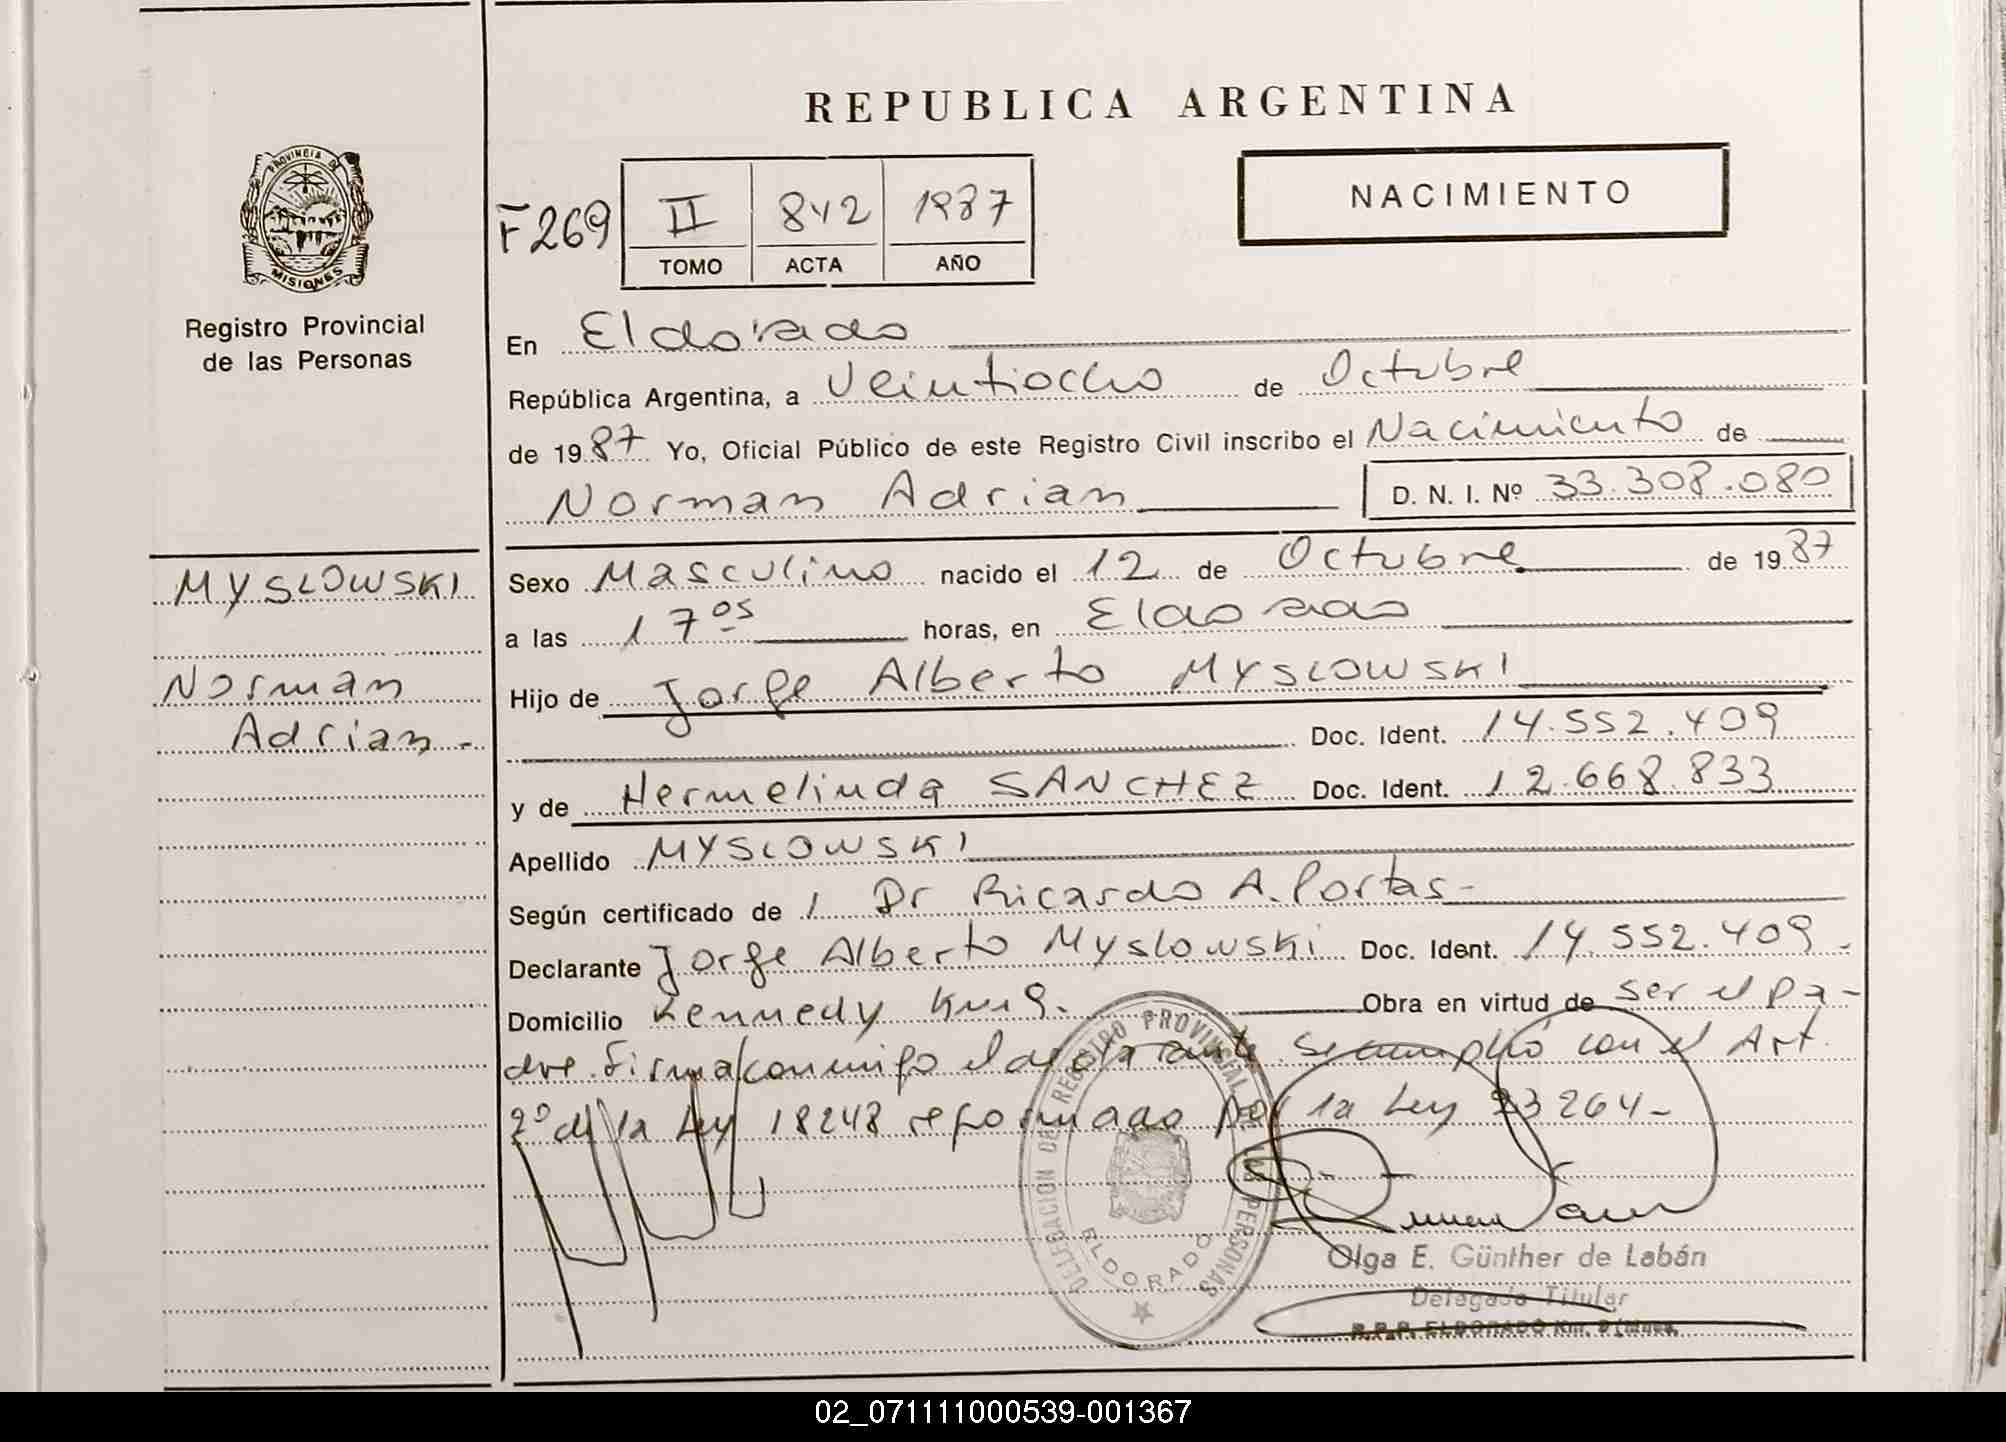 REPUBLICA ARGENTINA
NACIMIENTO
F 269
II
842
1987
TOMO
ACTA
AÑO
PROVINCIA DE
MISIONES
Registro Provincial
de las Personas
MYSLOWSKI
Norman
Adrian -
En Eldorado
República Argentina, a Veintiocho de Octubre
de 1987 Yo, Oficial Público de este Registro Civil inscribo el Nacimiento de
Norman Adrian D. N. I. Nº 33.308.080
Sexo Masculino nacido el 12 de Octubre de 1987
a las 17 05 horas, en Eldorado
Hijo de Jorge Alberto MYSLOWSKI
Doc. Ident. 14.552.409
y de Hermelinda SANCHEZ Doc. Ident. 12.668.833
Apellido MYSLOWSKI
Según certificado de / Dr Ricardo A. Portas -
Declarante Jorge Alberto Myslowski Doc. Ident. 14.552.409 -
Domicilio Kennedy Km 9. Obra en virtud de ser el pa-
dre. Firma conmigo el declarante. Se cumplió con el Art.
2º de la Ley 18248 reformado por la Ley 23264 -
DELEGACION DEL REGISTRO PROVINCIAL DE LAS PERSONAS
ELDORADO
Olga E. Günther de Labán
Delegada Titular
R.P.P. ELDORADO Km. 9 (Mnes.
02_071111000539-001367